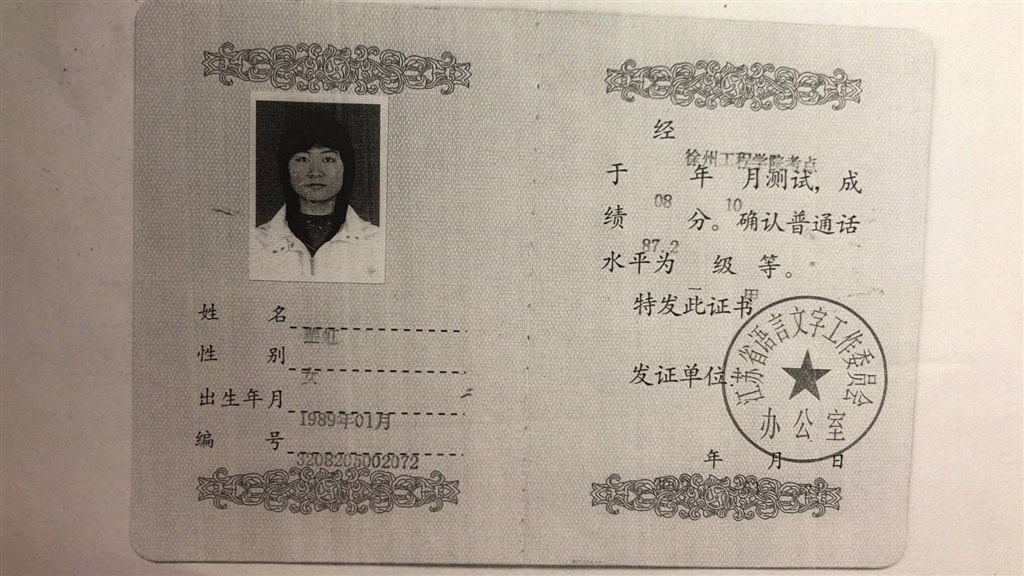 姓 名
性 别
女
出生年月
1989年01月
编 号
3208205002072
经
徐州工程学院考点
于 年 月测试，成
08 10
绩 分。确认普通话
87.2
水平为 级 等。
甲
特发此证书
发证单位：
江苏省语言文字工作委员会
办公室
年 月 日